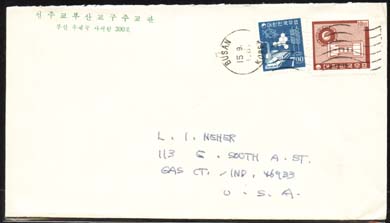 천주교부산교구주교관
부산 우체국 사서함 300호
BUSAN
15.9
KOREA
대한민국우표
7.00
대한민국우표
L. I. NEHER
113 E. SOUTH A. ST.
GAS CT. /IND. 46933
U. S. A.